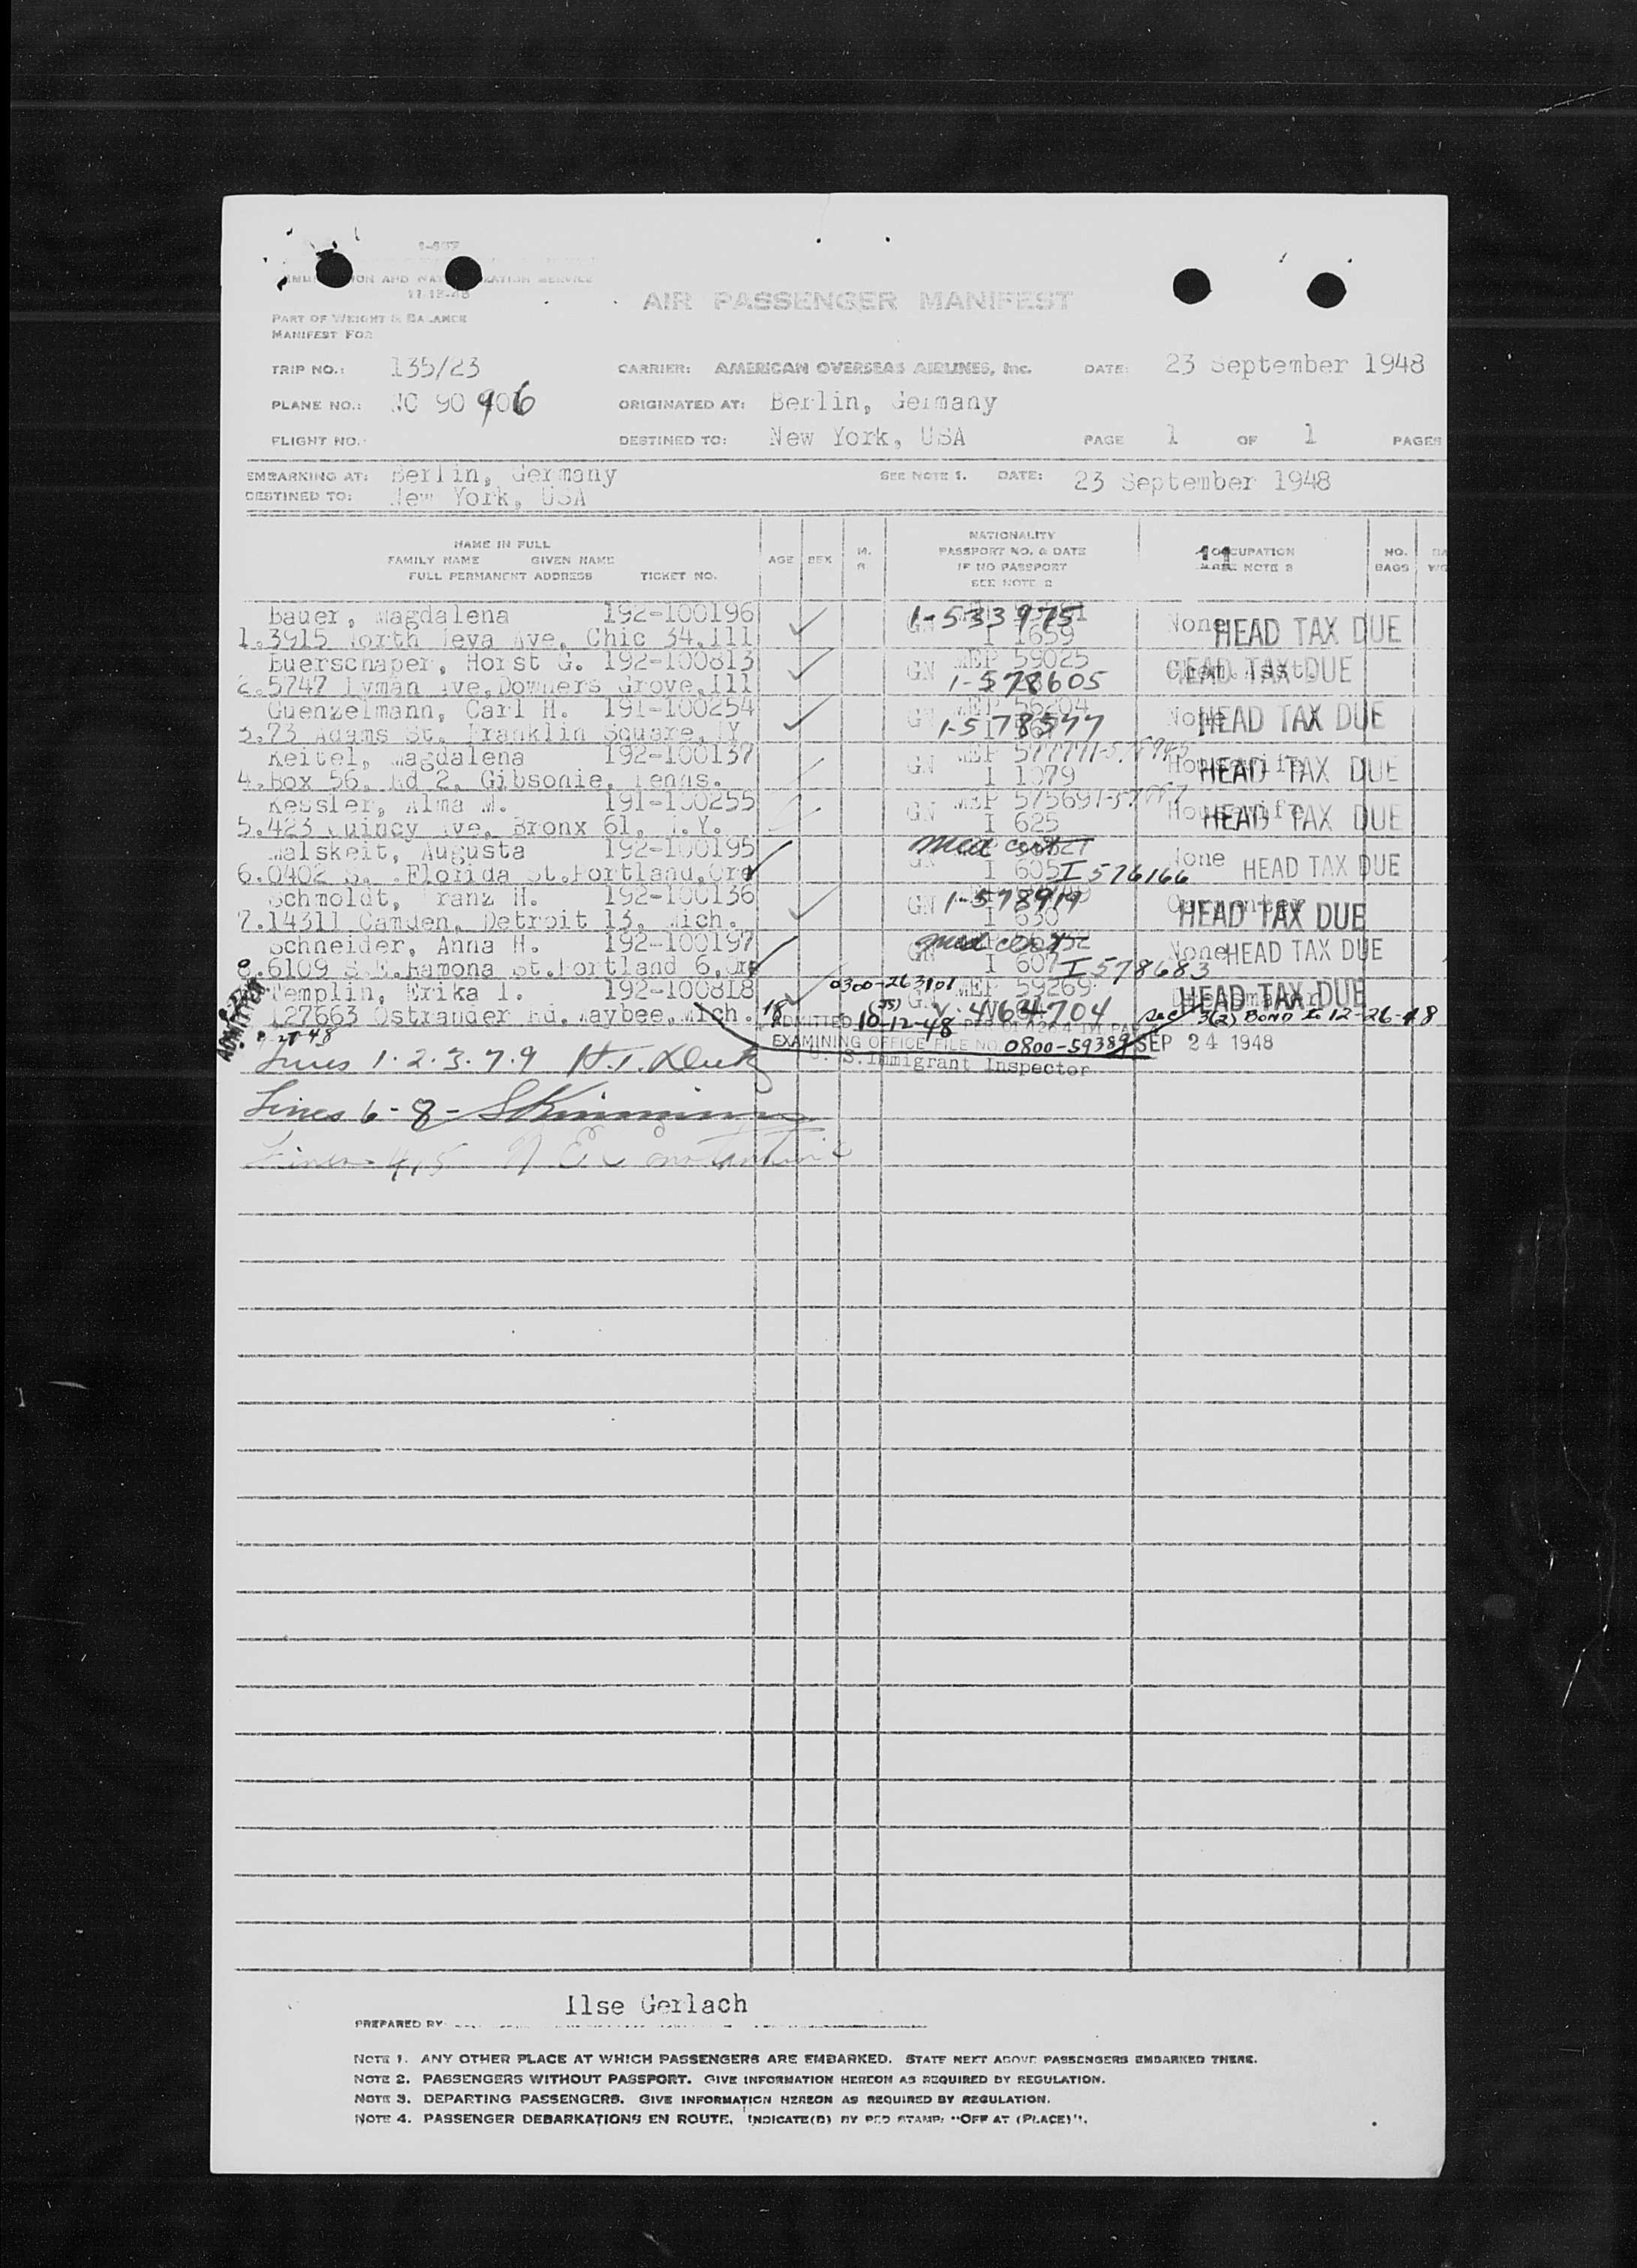 I-467
11-18-48
AIR PASSENGER MANIFEST
PART OF WEIGHT & BALANCE
MANIFEST FOR
TRIP NO.: 135/23 CARRIER: AMERICAN OVERSEAS AIRLINES, Inc. DATE: 23 September 1948
PLANE NO.: NC 90 906 ORIGINATED AT: Berlin, Germany
FLIGHT NO.: DESTINED TO: New York, USA PAGE 1 OF 1 PAGES
EMBARKING AT: Berlin, Germany SEE NOTE 1. DATE: 23 September 1948
DESTINED TO: New York, USA
NAME IN FULL
FAMILY NAME GIVEN NAME
FULL PERMANENT ADDRESS TICKET NO.
AGE SEX
NATIONALITY
PASSPORT NO. & DATE
IF NO PASSPORT
SEE NOTE 2
OCCUPATION
NOTE 3
NO.
BAGS
Bauer, Magdalena 192-100196 1-533975 None
1.3915 North Neva Ave, Chic 34,Ill I 1659 HEAD TAX DUE
Buerschaper, Horst G. 192-100813 GN MEP 59025 HEAD TAX DUE
2.5747 Lyman Ave,Downers Grove,Ill 1-578605
Guenzelmann, Carl H. 191-100254 GN MEP 56204 None HEAD TAX DUE
3.73 Adams St. Franklin Square,NY 1-578577
Keitel, Magdalena 192-100137 GN MEP 57777 Housewife
4.Box 56, Rd 2, Gibsonie, Penns. I 1079 HEAD TAX DUE
Kessler, Alma M. 191-100255 GN MEP 57569 Housewife
5.423 Quincy Ave, Bronx 61, N.Y. I 625 HEAD TAX DUE
Malskeit, Augusta 192-100195 med cert None
6.0402 S. .Florida St.Portland,Ore I 605 I 576166 HEAD TAX DUE
Schmoldt, Franz H. 192-100136 GN 1-578919
7.14311 Camden, Detroit 13, Mich. I 630 HEAD TAX DUE
Schneider, Anna H. 192-100197 med cert None HEAD TAX DUE
8.6109 S.E.Ramona St.Portland 6,Ore I 607 I 578683
Templin, Erika I. 192-100818 0300-263101 MEP 59269 HEAD TAX DUE
127663 Ostrander Rd.Maybee,Mich. 18 V. 4N64704
ADMITTED
ADMITTED 10-12-48 Sec 3(2) BOND to 12-26-48
EXAMINING OFFICE FILE NO. 0800-59389 SEP 24 1948
U. S. Immigrant Inspector
Lines 1-2-3-7-9
Lines 6-8-
Lines 4,5
Ilse Gerlach
PREPARED BY
NOTE 1. ANY OTHER PLACE AT WHICH PASSENGERS ARE EMBARKED. STATE NEXT ABOVE PASSENGERS EMBARKED THERE.
NOTE 2. PASSENGERS WITHOUT PASSPORT. GIVE INFORMATION HEREON AS REQUIRED BY REGULATION.
NOTE 3. DEPARTING PASSENGERS. GIVE INFORMATION HEREON AS REQUIRED BY REGULATION.
NOTE 4. PASSENGER DEBARKATIONS EN ROUTE. INDICATE(D) BY RED STAMP: "OFF AT (PLACE)".